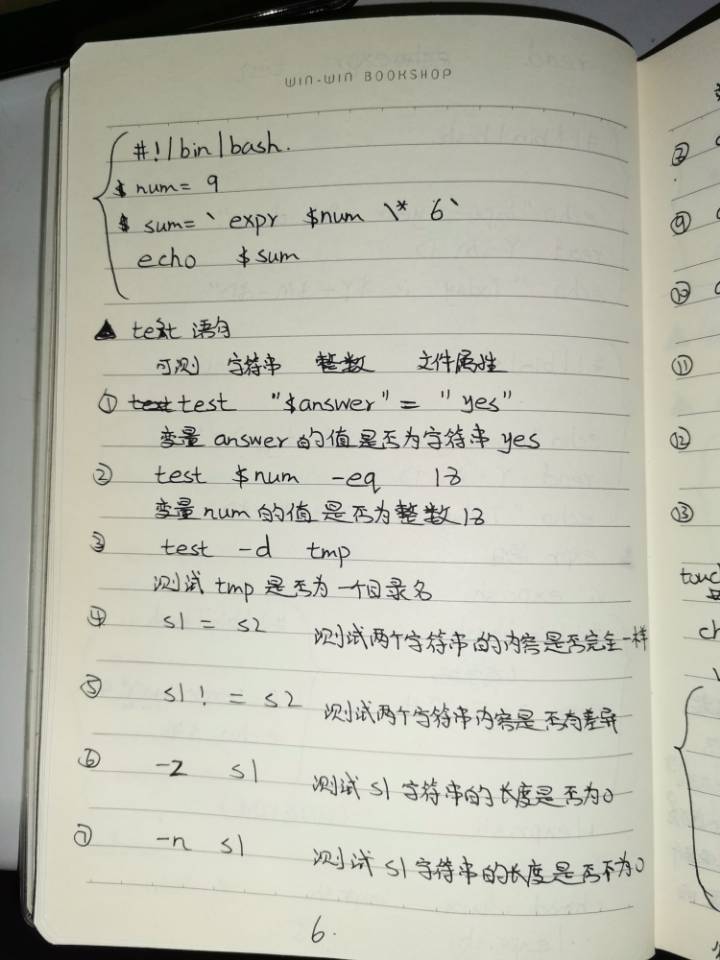 WIN-WIN BOOKSHOP
#!/bin/bash.
$ num= 9
$ sum=` expr $num \* 6`
echo $sum
▲ test 语句
可测 字符串 整数 文件属性
① test "$answer" = "yes"
变量 answer 的值是否为字符串 yes
② test $num -eq 18
变量 num 的值是否为整数 18
③ test -d tmp
测试 tmp 是否为一个目录名
④ s1 = s2 测试两个字符串的内容是否完全一样
⑤ s1 != s2 测试两个字符串内容是否有差异
⑥ -z s1 测试 s1 字符串的长度是否为0
⑦ -n s1 测试 s1 字符串的长度是否不为0
6.
⑨
⑪
⑫
⑬
touc
ch